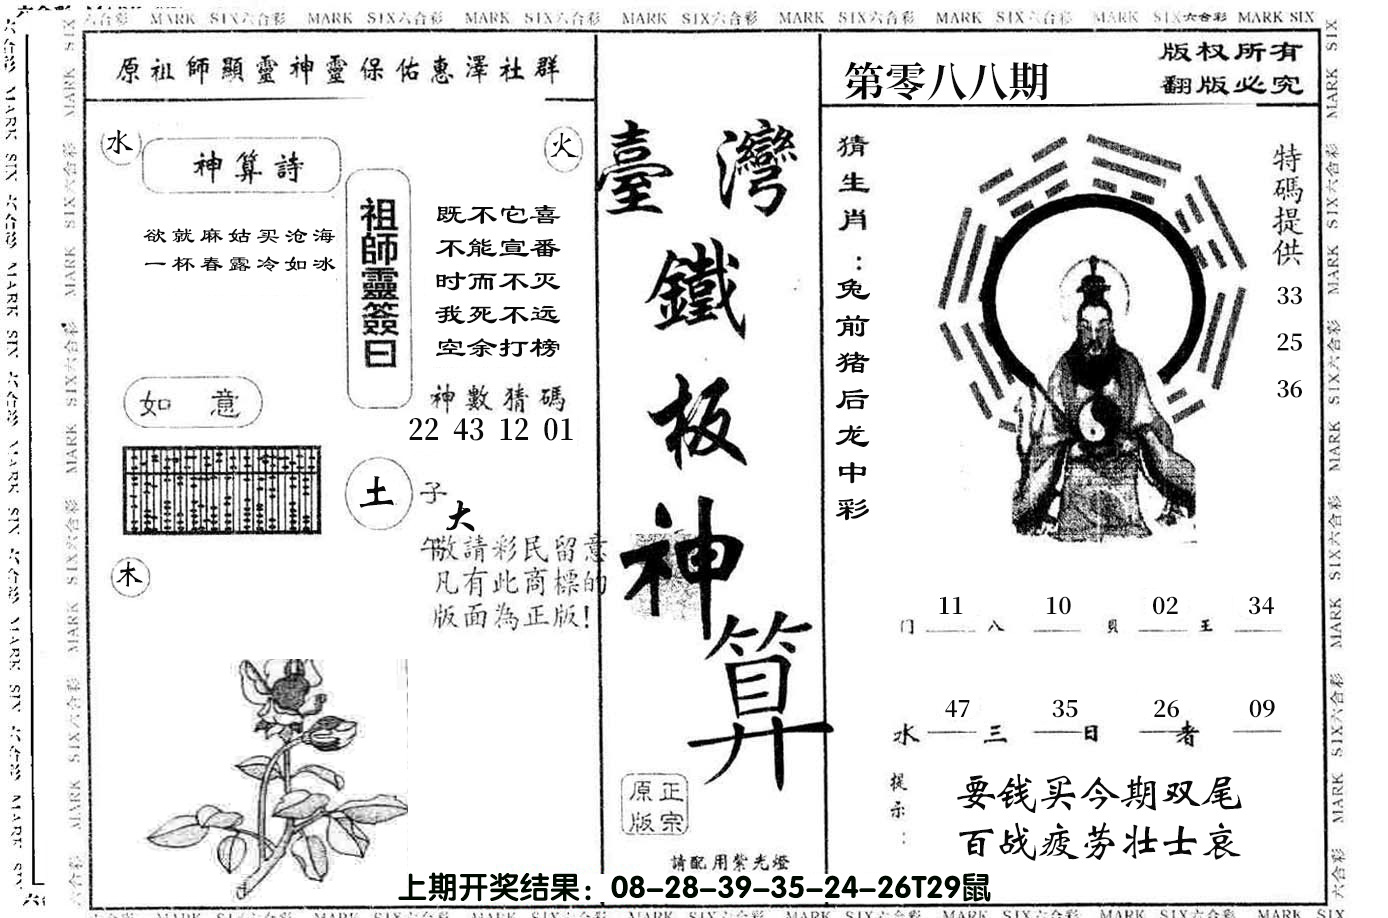 六合彩 MARK SIX六合彩 MARK SIX六合彩 MARK SIX六合彩 MARK SIX六合彩 MARK SIX六合彩 MARK SIX六合彩 MARK SIX六合彩 MARK SIX
原祖師顯靈神靈保佑惠澤社群
水
神算詩
火
欲就麻姑买沧海
一杯春露冷如冰
祖師靈簽曰
既不它喜
不能宣番
时而不灭
我死不远
空余打榜
如意
神數猜碼
22 43 12 01
土
子
大
午
敬請彩民留意
凡有此商標的
版面為正版!
木
臺灣
鐵
板
神
算
正宗
原版
請配用紫光燈
第零八八期
版权所有
翻版必究
猜生肖:兔前猪后龙中彩
特碼提供
33
25
36
11 10 02 34
门 八 貝 王
47 35 26 09
水 三 日 者
提示:
要钱买今期双尾
百战疲劳壮士哀
上期开奖结果：08-28-39-35-24-26T29鼠